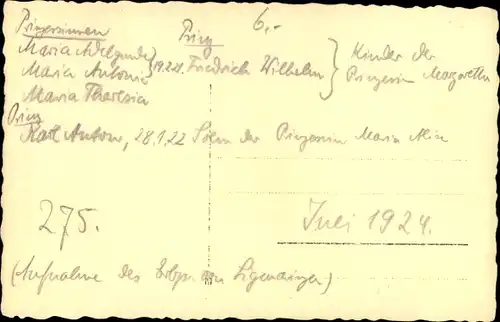 Prinzessinnen
Prinz
6,-
Maria Adelgunde
Maria Antonia } 19.2.21. Friedrich Wilhelm } Kinder der
Maria Theresia
Prinzessin Margarethe
Prinz
Karl Anton, 28.1.22 Sohn der Prinzessin Maria Alix
275.
Juli 1924.
(Aufnahme des Erbpr. von Sigmaringen)